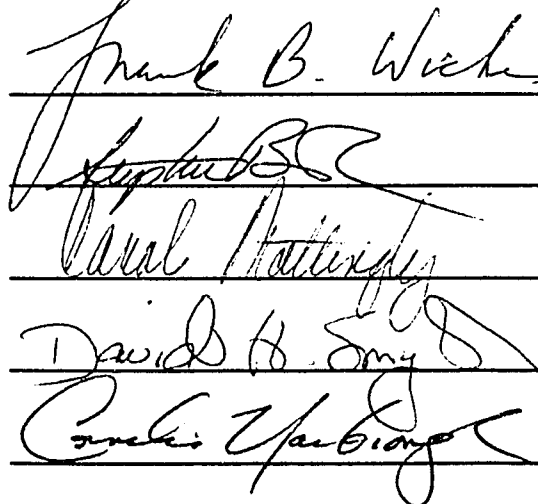 Frank B. Wicke
Stephen B
Carol Mattingly
David H. Smy
Cornelis